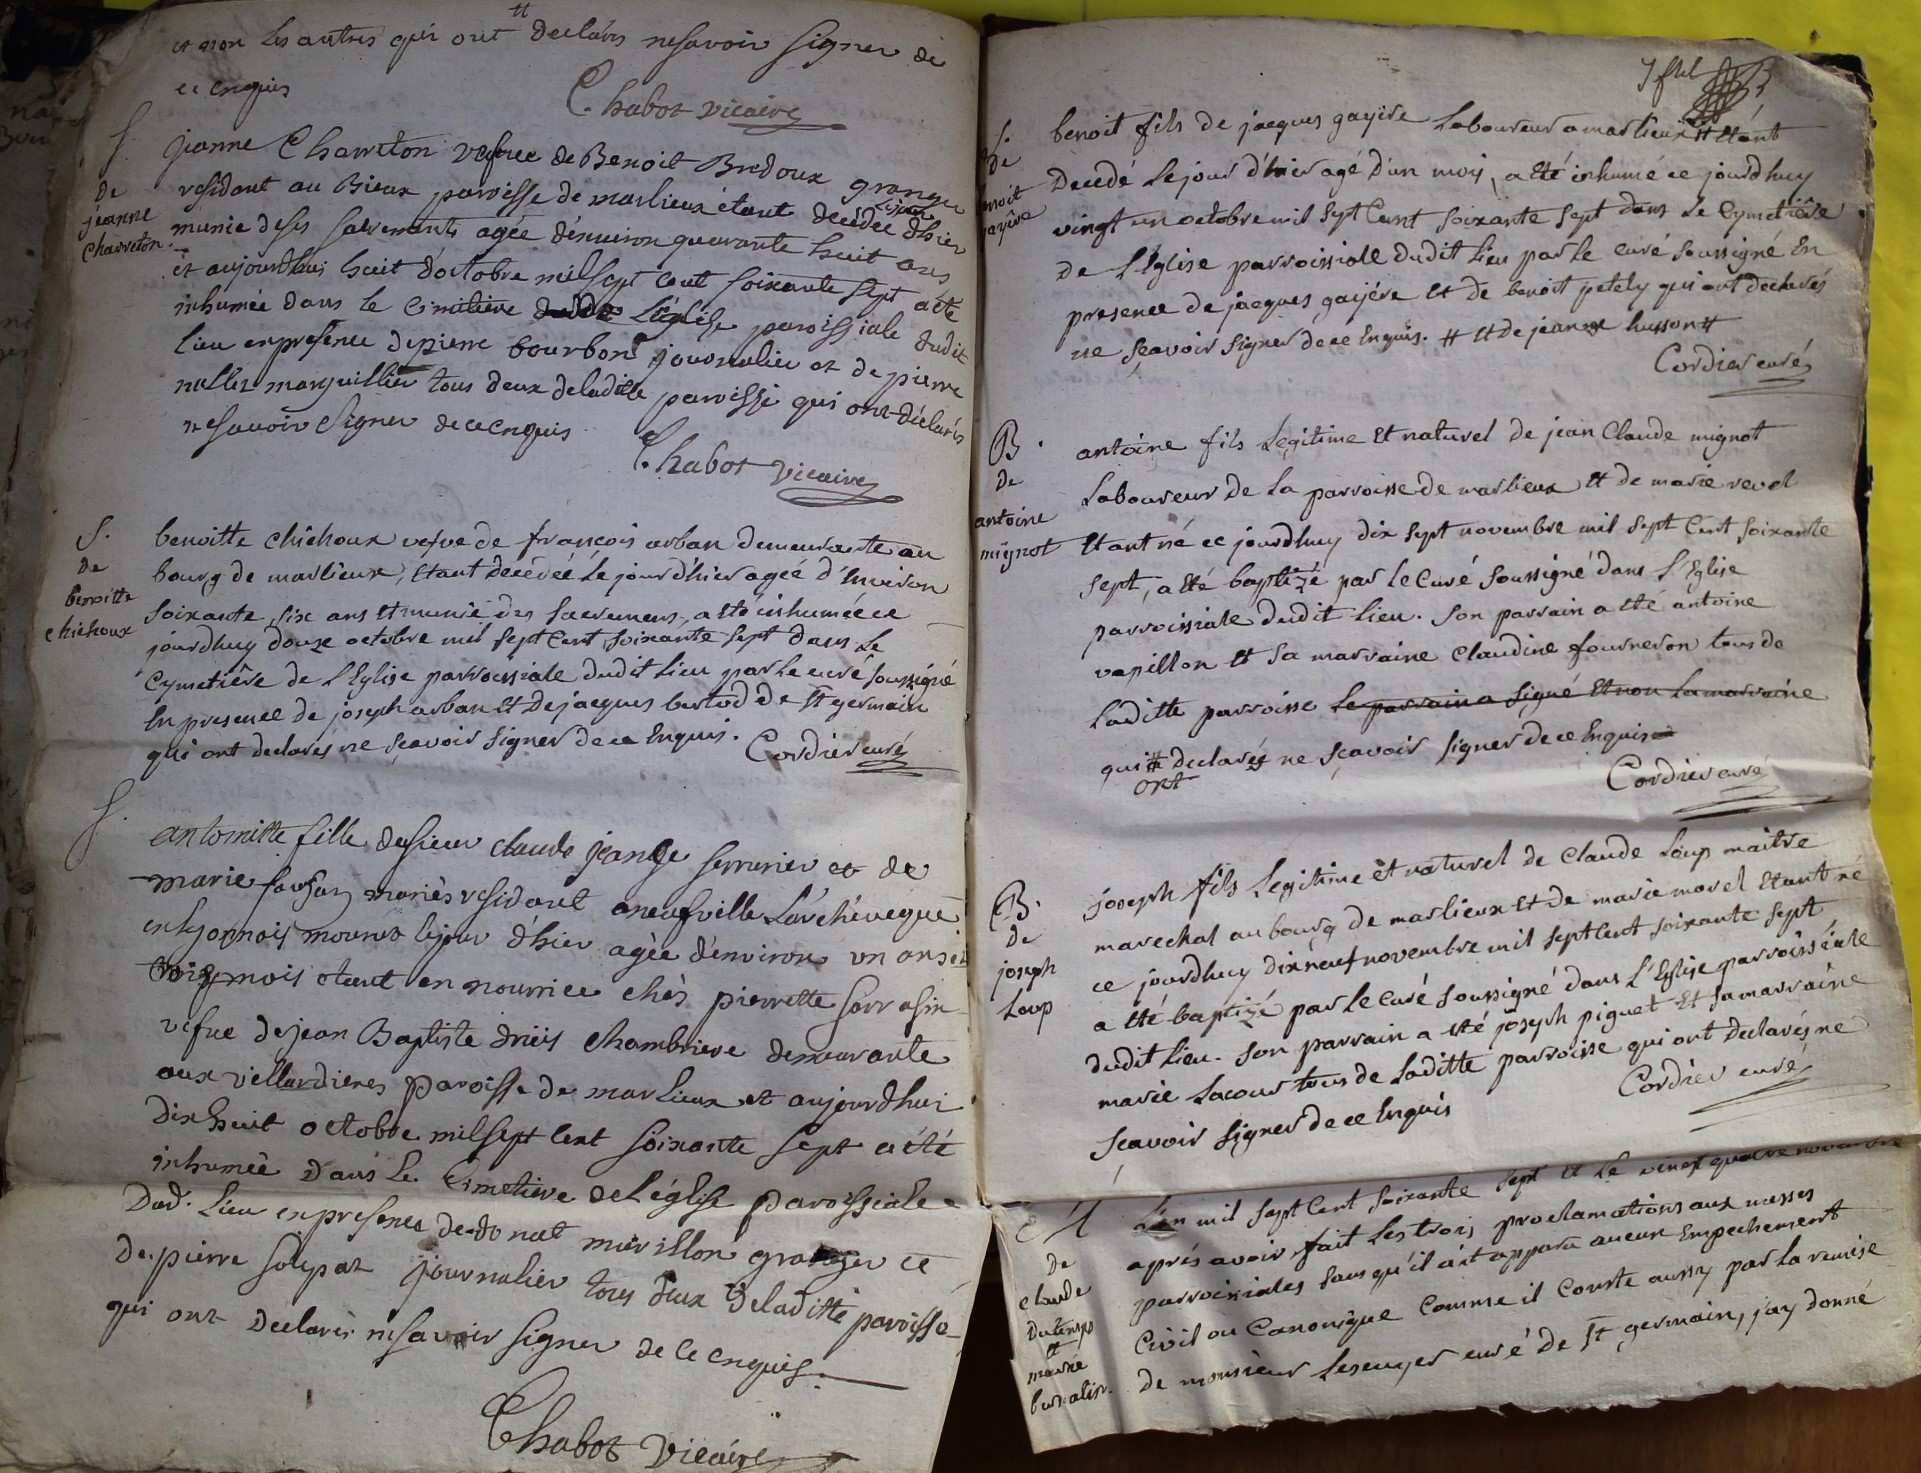 et non les autres qui ont declarés nesavoir signer de
ce enquis
Chabot vicaire
S.
de
jeanne
Charreton.
jeanne Charreton vefve de Benoit Bredoux granger
residant au Bieux paroisse de marlieux étant decédée le jour d'hier
munie de ses sacrements agée d'environ quarante huit ans
et aujourdhui huit d'octobre mil sept cent soixante sept a été
inhumée dans le cimetiere de l'église paroissiale dudit
lieu en presence de pierre bourbon journalier et de pierre
nallet marguillier tous deux deladitte paroisse qui ont déclarés
nesavoir signer de ce enquis
Chabot vicaire
S.
de
benoitte
chichoux
benoitte chichoux vefve de francois arban demeurante au
bourg de marlieux, etant decedée le jour d'hier agée d'environ
soixante six ans et munie des sacremens, a eté inhumée ce
jourdhuy douze octobre mil sept cent soixante sept dans le
cymetière de l'Eglise parroissiale dudit lieu par le curé soussigné
en presence de joseph arban et de jacques bertod de st germain
qui ont declarés ne sçavoir signer de ce enquis. Cordier curé
S.
antoinette fille du sieur claude jange serrurier et de
marie mariès residant a neufville L'archéveque
en lyonnois mourut le jour d'hier agée d'environ un an et
trois mois etant en nourrice chès pierrette sarrasin
vefve de jean Baptiste chambriere demeurante
aux villardieres paroisse de marlieux et aujourdhui
dix huit octobre mil sept cent soixante sept a été
inhumée dans le Cimetiere de l'église paroissiale
dud. lieu en presence de donat murillon granger et
de pierre solupat journalier tous deux de laditte paroisse
qui ont declarés nesavoir signer de ce enquis.
Chabot vicaire
S.
de
benoit
gayere
benoit fils de jacques gayere laboureur a marlieux etant
decedé le jour d'hier agé d'un mois, a eté inhumé ce jourdhuy
vingt un octobre mil sept cent soixante sept dans le cymetière
de l'Eglise parroissiale dudit lieu par le curé soussigné en
presence de jacques gayère et de benoit petely qui ont declarés
ne sçavoir signer de ce enquis. # et de jeanne husson #
Cordier curé
B.
de
antoine
mignot
antoine fils legitime et naturel de jean Claude mignot
laboureur de la parroisse de marlieux et de marie revel
etant né ce jourdhuy dix sept novembre mil sept cent soixante
sept, a eté baptizé par le curé soussigné dans l'Eglise
parroissiale dudit lieu. son parrain a eté antoine
vapillon et sa marraine claudine fourneron tous de
laditte parroisse le parrain a signé et non la marraine
qui # declarés ne sçavoir signer de ce enquis
ont
Cordier curé
B.
de
joseph
Loup
joseph fils legitime et naturel de claude loup maitre
marechal au bourg de marlieux et de marie morel etant né
ce jourdhuy dix neuf novembre mil sept cent soixante sept
a eté baptizé par le curé soussigné dans l'Eglise parroissiale
dudit lieu. son parrain a eté joseph piguet et sa marraine
marie lacour tous de laditte parroisse qui ont declarés ne
scavoir signer de ce enquis
Cordier curé
M
de
claude
Dutemps
et
marie
L'an mil sept cent soixante sept et le vingt quatre novembre
après avoir fait les trois proclamations aux messes
parroissiales sans qu'il ait apparu aucun empechement
civil ou canonique comme il conste aussy par la remise
de monsieur Lescuyer curé de st germain, jay donné